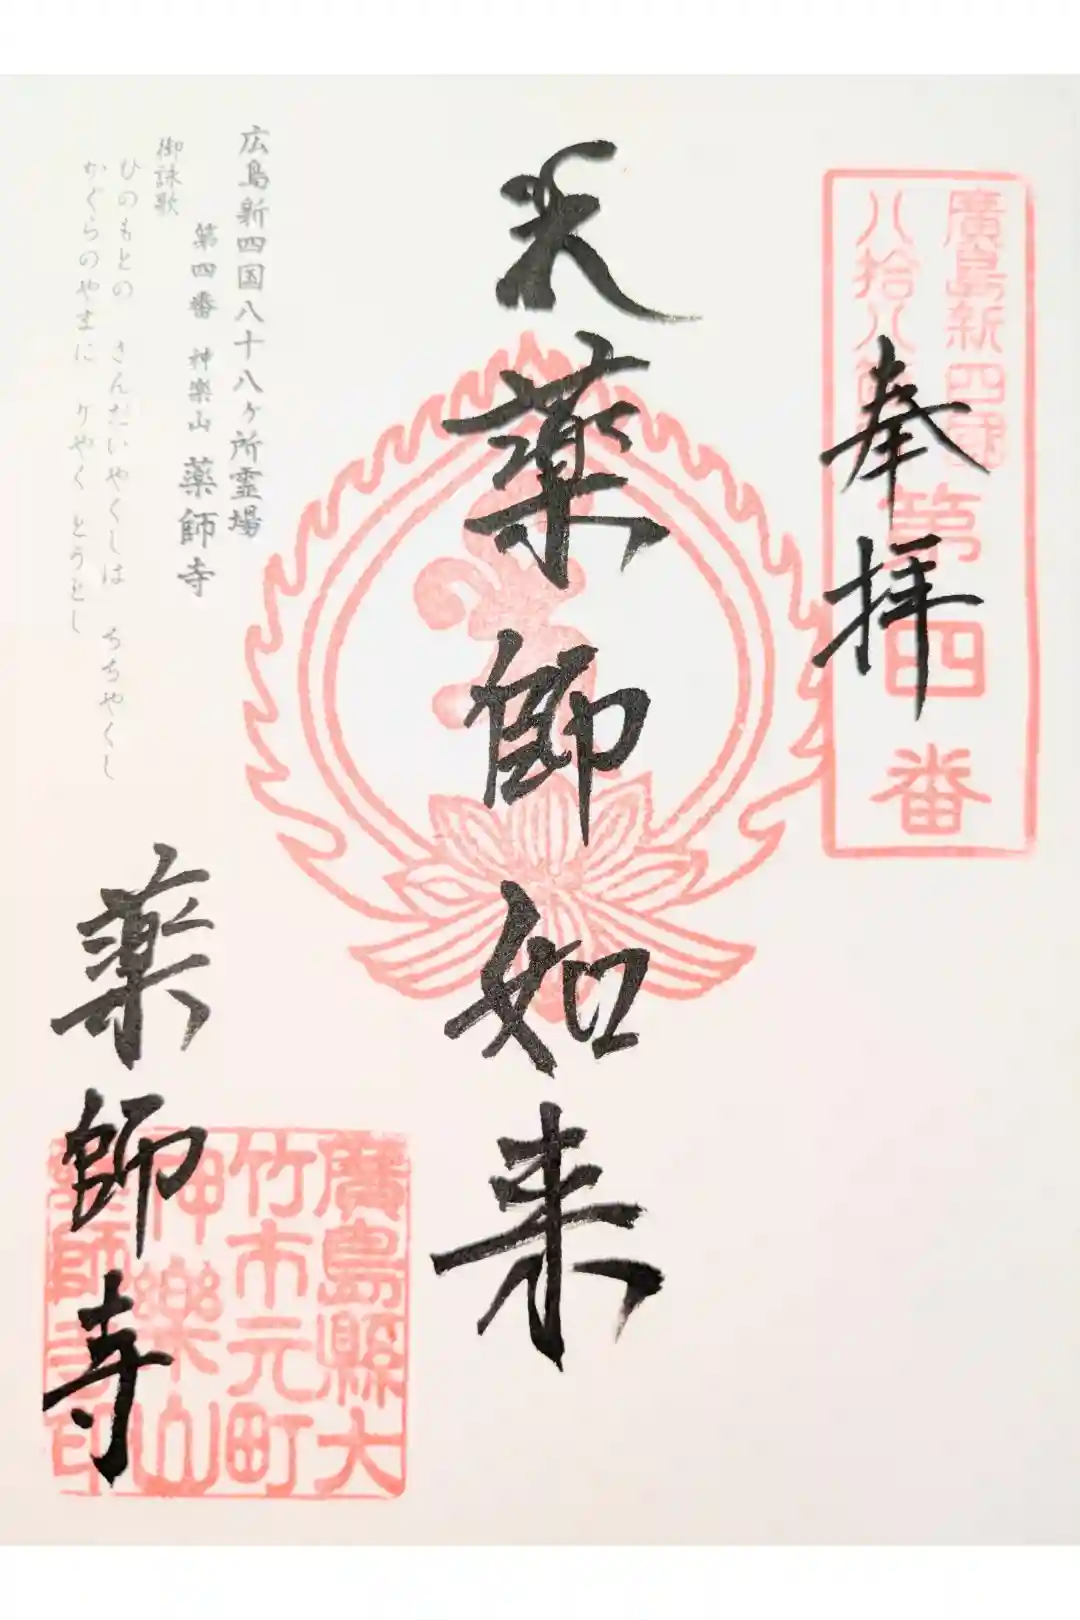 奉拝
廣島新四國
八拾八
第四番
薬師如来
広島新四国八十八ヶ所霊場
第四番 神楽山 薬師寺
御詠歌
ひのもとの さんだいやくしは ちちやくし
かぐらのやまに りやく とうとし
薬師寺
廣島縣大
竹市元町
神樂山
薬師寺印